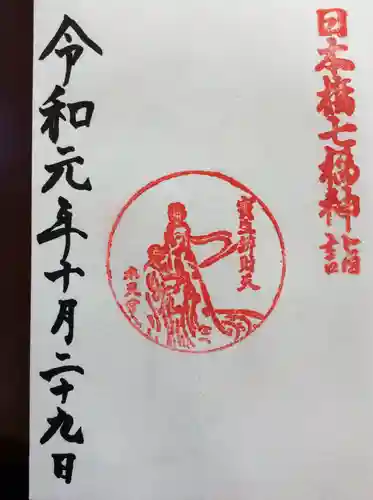 日本橋七福神詣
寳生辨財天
令和元年十月二十九日